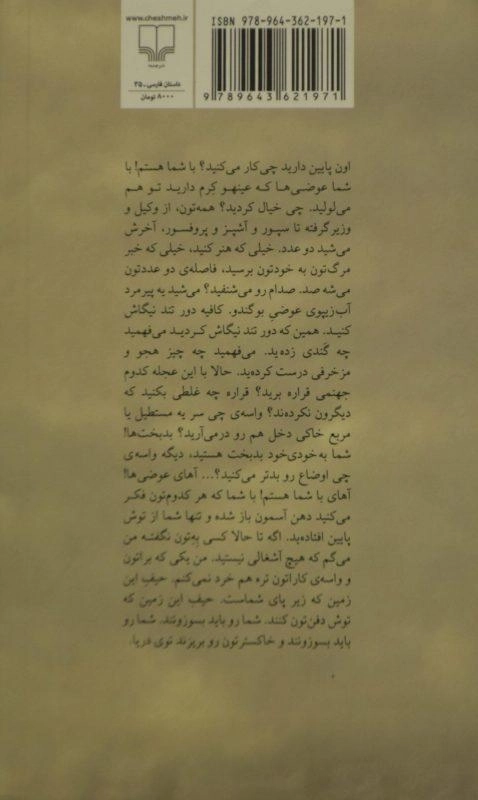 www.cheshmeh.ir
نشر چشمه
داستان فارسی ـ ۳۵
۸۰۰۰ تومان
ISBN 978-964-362-197-1
9 789643 621971
اون پایین دارید چی‌کار می‌کنید؟ با شما هستم! با
شما عوضی‌ها که عینهو کِرم دارید تو هم
می‌لولید. چی خیال کردید؟ همه‌تون، از وکیل و
وزیرگرفته تا سپور و آشپز و پروفسور، آخرش
می‌شید دو عدد. خیلی که هنر کنید، خیلی که خبر
مرگ‌تون به خودتون برسید، فاصله‌ی دو عددتون
می‌شه صد. صدام رو می‌شنفید؟ می‌شید یه پیرمرد
آب‌زیپوی عوضیِ بوگندو. کافیه دور تند نیگاش
کنید. همین که دور تند نیگاش کردید می‌فهمید
چه گَندی زده‌ید. می‌فهمید چه چیز هجو و
مزخرفی درست کرده‌ید. حالا با این عجله کدوم
جهنمی قراره برید؟ قراره چه غلطی بکنید که
دیگرون نکرده‌ند؟ واسه‌ی چی سر یه مستطیل یا
مربع خاکی دخل هم رو درمی‌آرید؟ بدبخت‌ها!
شما به‌خودی‌خود بدبخت هستید، دیگه واسه‌ی
چی اوضاع رو بدتر می‌کنید؟... آهای عوضی‌ها!
آهای با شما هستم! با شما که هر کدوم‌تون فکر
می‌کنید دهن آسمون باز شده و تنها شما از توش
پایین افتاده‌ید. اگه تا حالا کسی بِه‌تون نگفته من
می‌گم که هیچ آشغالی نیستید. من یکی که براتون
و واسه‌ی کاراتون تره هم خرد نمی‌کنم. حیفِ این
زمین که زیر پای شماست. حیف این زمین که
توش دفن‌تون کنند. شما رو باید بسوزونند. شما رو
باید بسوزونند و خاکسترتون رو بریزند توی دریا.